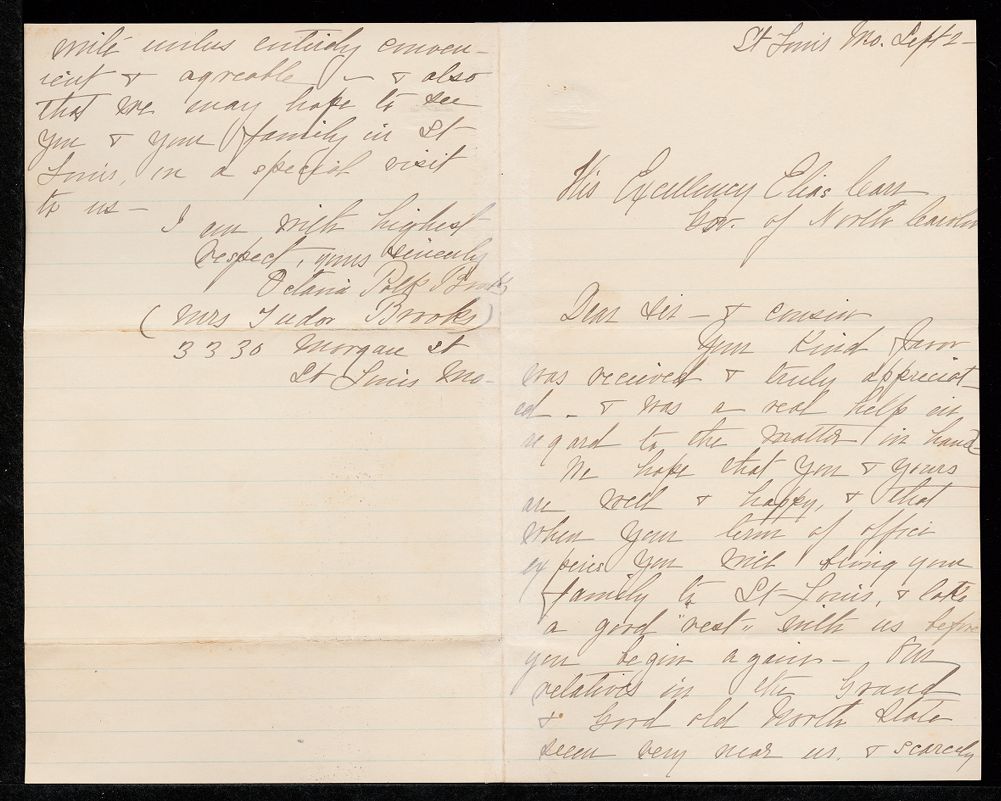 St Louis Mo. Sept 2-
His Excellency Elias Carr
Gov. of North Carolin
Dear Sir - & cousin
Your Kind favor
was received & truly appreciat-
ed - & was a real help in
regard to the matter in hand
We hope that you & yours
are well & happy, & that
when your term of office
expires you will bring your
family to St Louis, & take
a good "rest" with us before
you begin again - Our
relatives in the Grand
& Good old North State
seem very near us, & scarcely
while unless entirely conven-
ient & agreable - & also
that we may hope to see
you & your family in St
Louis, on a special visit
to us -
I am with highest
respect, yours sincerely
Octavia Polk Brooks
(Mrs Tudor Brooks)
3330 Morgan st
St Louis Mo-